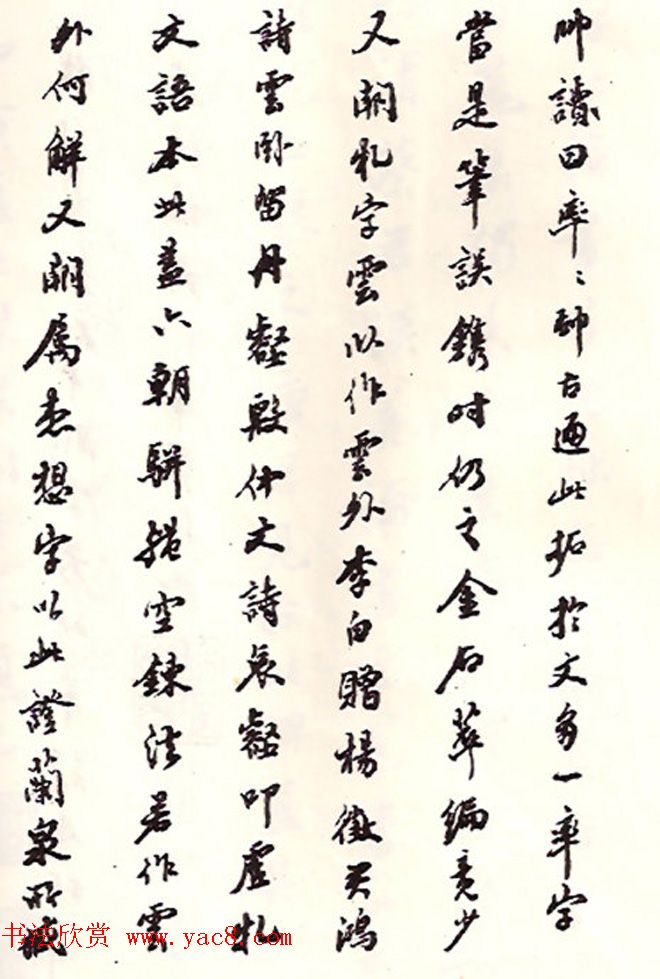 帥讀曰率率帥古通此拓於文多一率字
當是筆誤鐫時仍之金石萃編竟少
又闕札字雲以作雲外李白贈楊徵君鴻
詩雲卧留丹壑殷仲文詩哀壑叩虛牝
文語本此蓋六朝駢驪空鍊法若作雲
外何解又闕屬想字以此證蘭泉所藏
书法欣赏 www.yac8.com